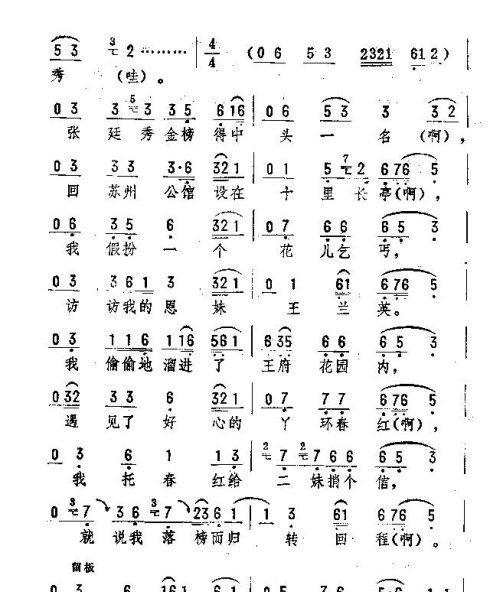 5 3 3 2 ……… | 4/4 (0 6 5 3 2321 61 2) |
秀 (哇)。
0 3 5 3 3 3 5 6 1 6 | 0 6 5 3 3 3 2 |
张 廷 秀 金榜 得中 头 一 名 (啊),
0 3 3 3 3·6 3 2 1 | 0 1 5 7 2 6 76 5 |
回 苏州 公馆 设在 十 里 长 亭(啊),
0 6 3 5 6 3 2 1 | 0 7 6 6 6 5 3 |
我 假扮 一 个 花 儿乞 丐,
0 3 3 6 1 3 3 2 1 | 0 1 6 1 6 76 5 |
访 访我的 恩 妹 王 兰 英。
0 3 1 1 6 1 1 6 5 6 1 | 6 3 5 6 6 6 5 3 |
我 偷偷地 溜进 了 王府 花园 内,
0 3 2 3 3 6 3 2 1 | 0 7 7 7 6 76 5 |
遇 见了 好 心的 丫 环春 红(啊),
0 3 6 1 1 3 | 2 7 2 7 6 6 5 3 |
我 托 春 红给 二 妹捎个 信,
0 3 7 3 6 3 7 2 3 6 1 | 1 3 6 1 6 76 5 |
就 说我 落 榜而归 转 回 程(啊)。
留板